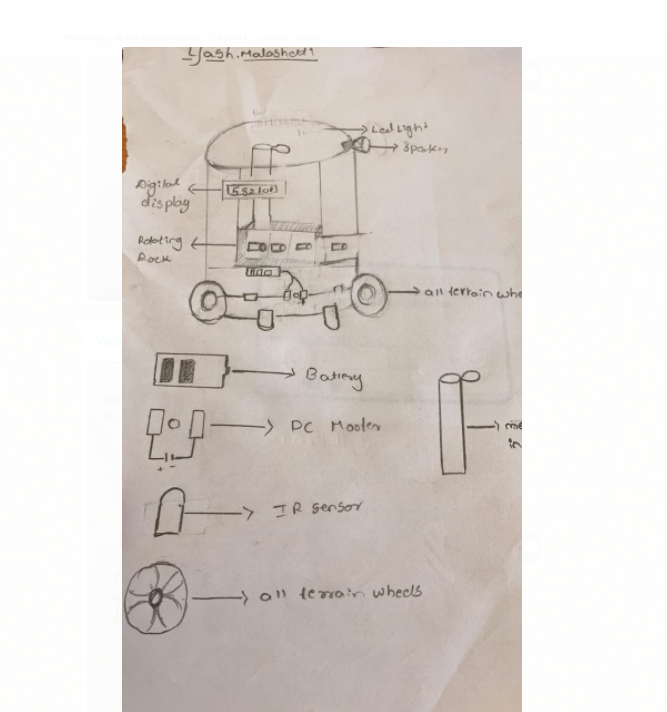 Yash.Malashetti
Led light
Speaker
Digital
display
Rotating
Rack
all terrain whe
Battery
DC Mooter
me
in
IR sensor
all terrain wheels